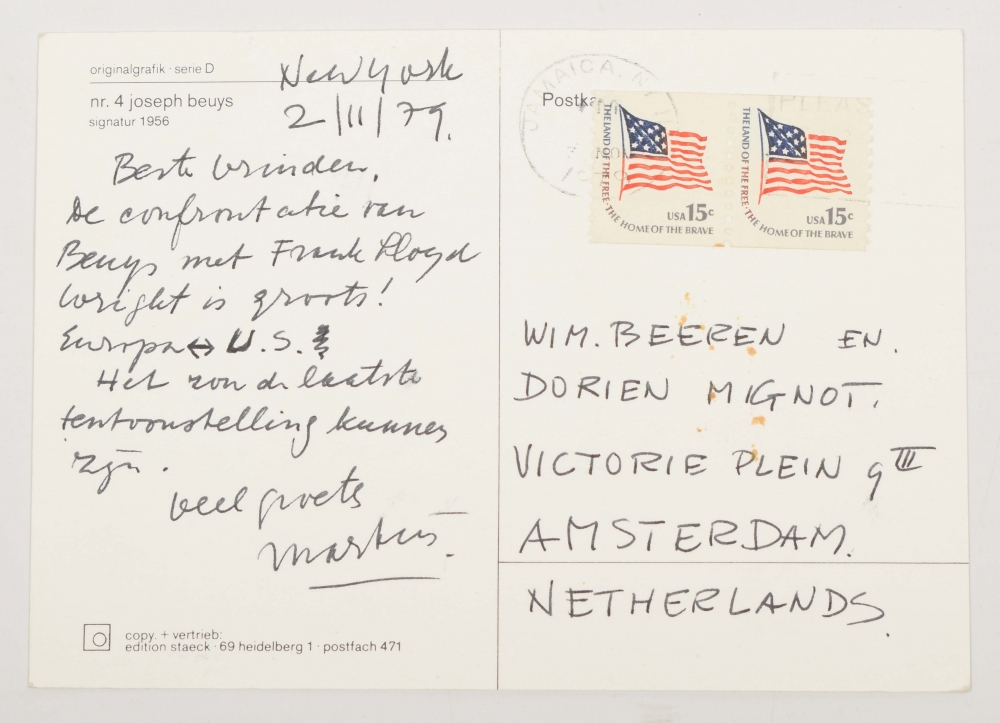 originalgrafik · serie D
nr. 4 joseph beuys
signatur 1956
New York
2/11/79.
Beste vrinden,
De confrontatie van
Beuys met Frank Lloyd
Wright is groots!
Europa ↔ U.S.
Het zou de laatste
tentoonstelling kunnen
zijn.
Veel groets
Martin.
copy. + vertrieb:
edition staeck · 69 heidelberg 1 · postfach 471
Postka
JAMAICA, N.Y.
PM
NOV
PLEAS
THE LAND OF THE FREE · THE HOME OF THE BRAVE
USA 15c
THE LAND OF THE FREE · THE HOME OF THE BRAVE
USA 15c
WIM. BEEREN EN.
DORIEN MIGNOT.
VICTORIE PLEIN 9 III
AMSTERDAM.
NETHERLANDS.